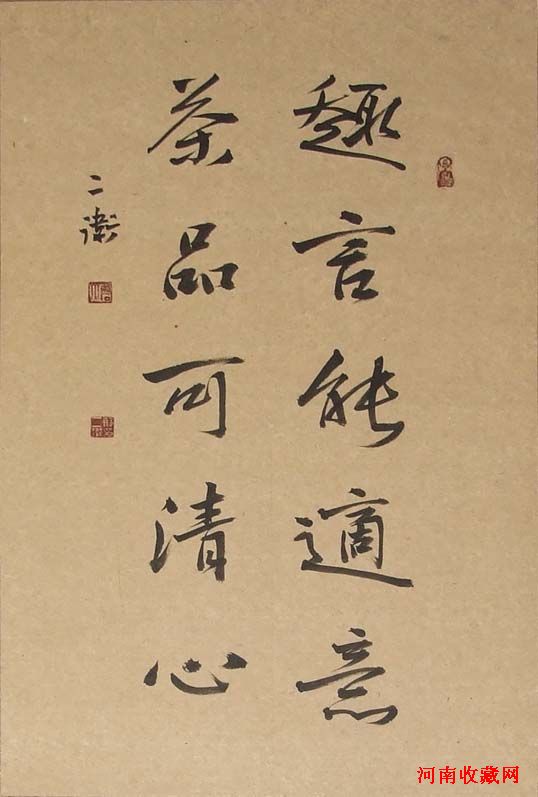 趣言能適意
茶品可清心
二衛
河南收藏网